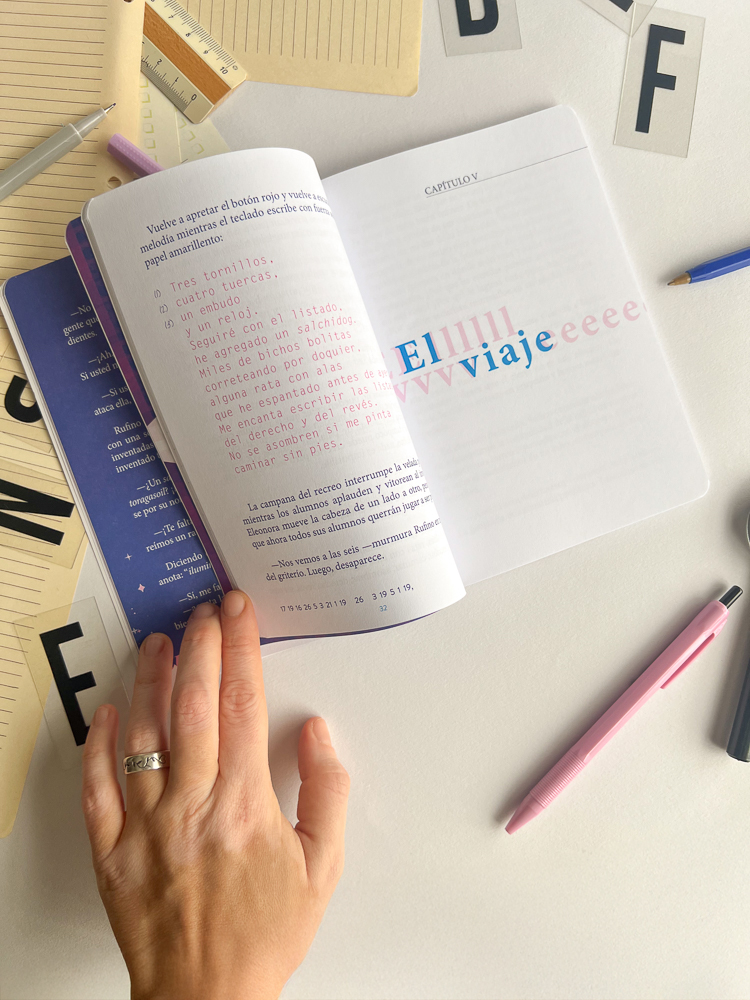 Vuelve a apretar el botón rojo y vuelve a
melodía mientras el teclado escribe con
papel amarillento:
(1) Tres tornillos,
(2) cuatro tuercas,
(3) un embudo
y un reloj.
Seguiré con el listado,
he agregado un salchidog.
Miles de bichos bolitas
correteando por doquier,
alguna rata con alas
que he espantado antes de
Me encanta escribir las
del derecho y del revés.
No se asombren si me pinta
caminar sin pies.
La campana del recreo interrumpe la
mientras los alumnos aplauden y vitorean
Eleonora mueve la cabeza de un lado a otro,
que ahora todos sus alumnos querrán jugar a
—Nos vemos a las seis —murmura Rufino
del griterío. Luego, desaparece.
17 19 16 26 5 3 21 1 19 26 3 19 5 1 19,
32
CAPÍTULO V
Ellllllll
vvvviajeeeeee
—No
gente
dientes.
—¡Ah
Si usted
ataca ella,
Rufino
con una
inventadas
inventado
—¿Un
toragasoil?
se por su
—¡Te falta
reímos un
Diciendo
anota:
—Sí, me
F
N
E
0
1
2
10
9
8